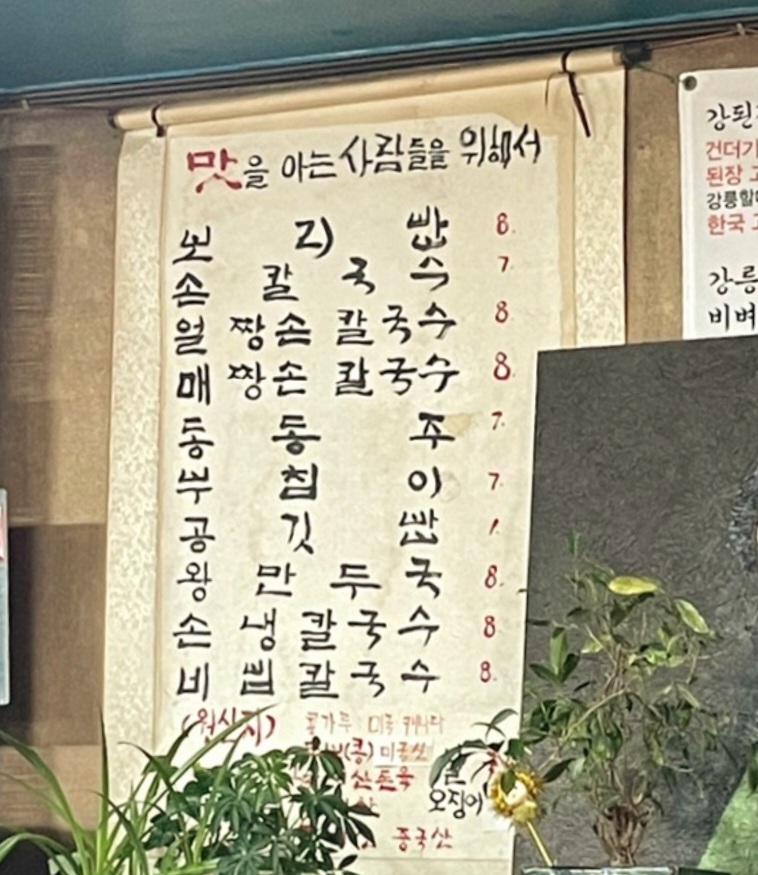 맛을 아는 사람들을 위해서
뽀 리 빱 8.
손 칼 국 수 7.
얼 짱 손 칼 국 수 8.
매 짱 손 칼 국 수 8.
동 동 주 7.
부 침 이 7.
공 깃 빱 1.
왕 만 두 국 8.
손 냉 칼 국 수 8
비 빔 칼 국 수 8.
(원산지) 미국 캐나다
(콩) 미국산
오징어
중국산
강된
건더기
된장
강릉할
한국
강릉
비벼